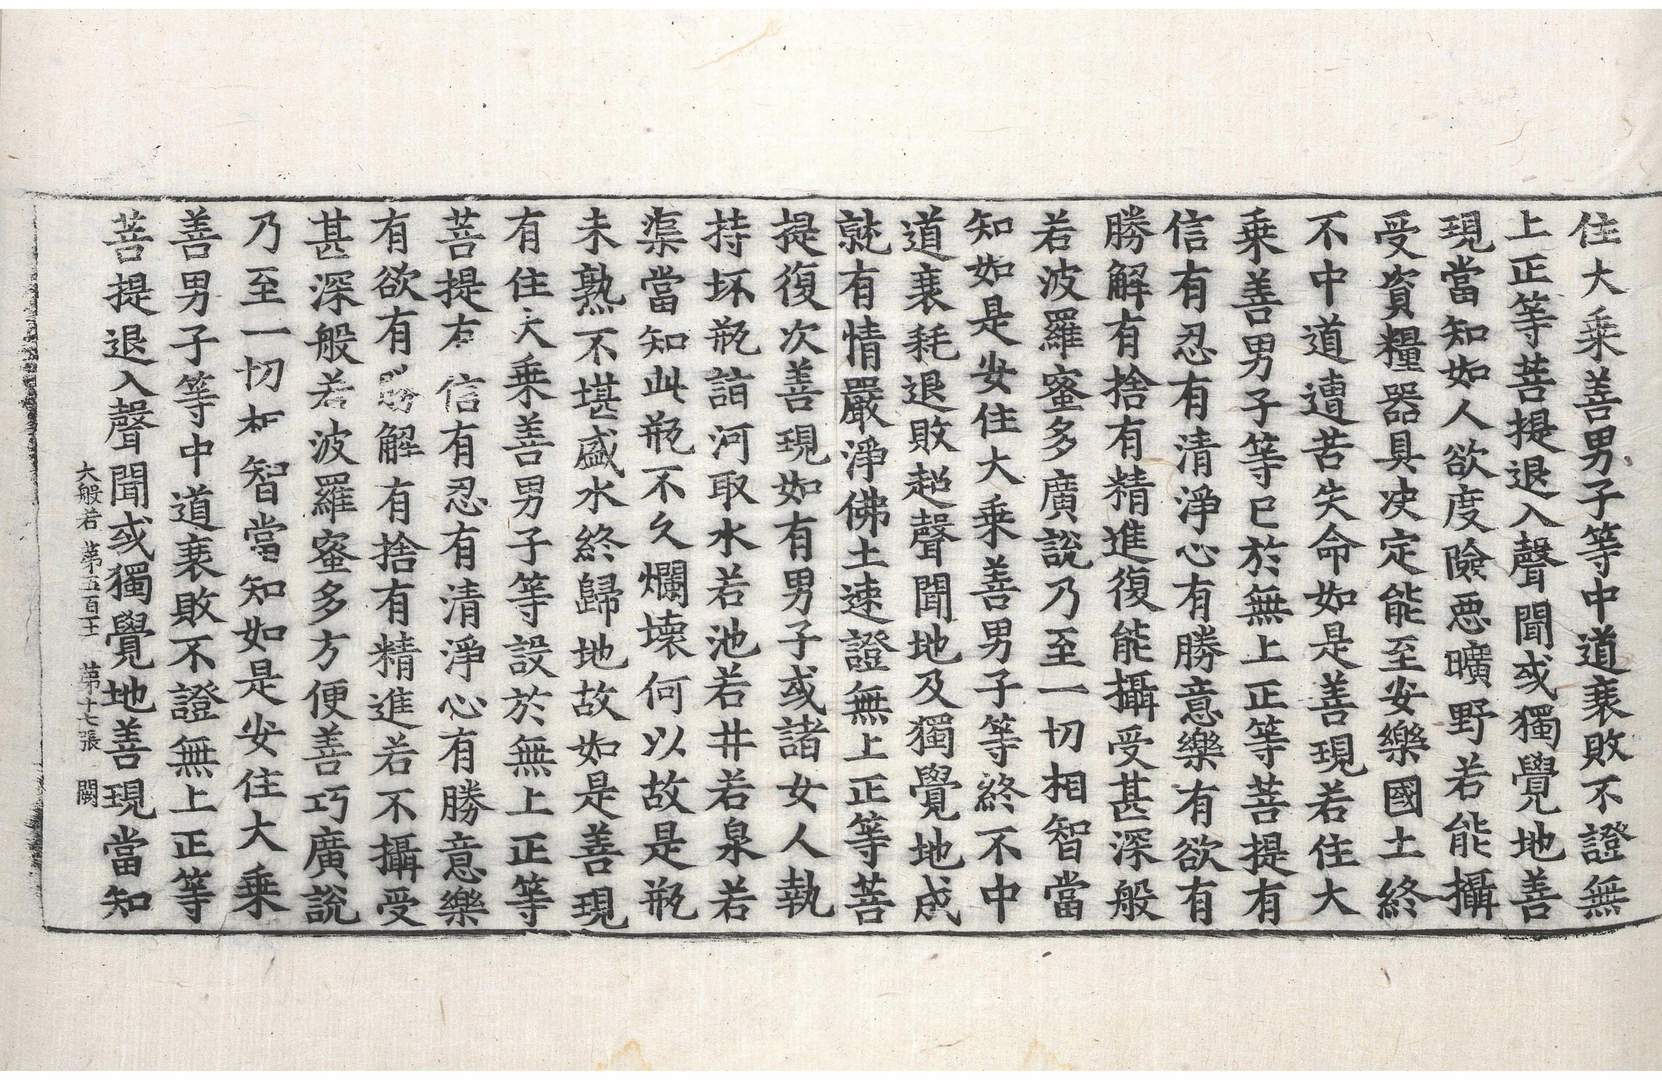 住大乘善男子等中道衰敗不證無
上正等菩提退入聲聞或獨覺地善
現當知如人欲度險惡曠野若能攝
受資糧器具決定能至安樂國土終
不中道遭苦失命如是善現若住大
乘善男子等已於無上正等菩提有
信有忍有清淨心有勝意樂有欲有
勝解有捨有精進復能攝受甚深般
若波羅蜜多廣說乃至一切相智當
知如是安住大乘善男子等終不中
道衰耗退敗超聲聞地及獨覺地成
就有情嚴淨佛土速證無上正等菩
提復次善現如有男子或諸女人執
持坏瓶詣河取水若池若井若泉若
渠當知此瓶不久爛壞何以故是瓶
未熟不堪盛水終歸地故如是善現
有住大乘善男子等設於無上正等
菩提有信有忍有清淨心有勝意樂
有欲有勝解有捨有精進若不攝受
甚深般若波羅蜜多方便善巧廣說
乃至一切相智當知如是安住大乘
善男子等中道衰敗不證無上正等
菩提退入聲聞或獨覺地善現當知
大般若 第五百 第十七張 闕